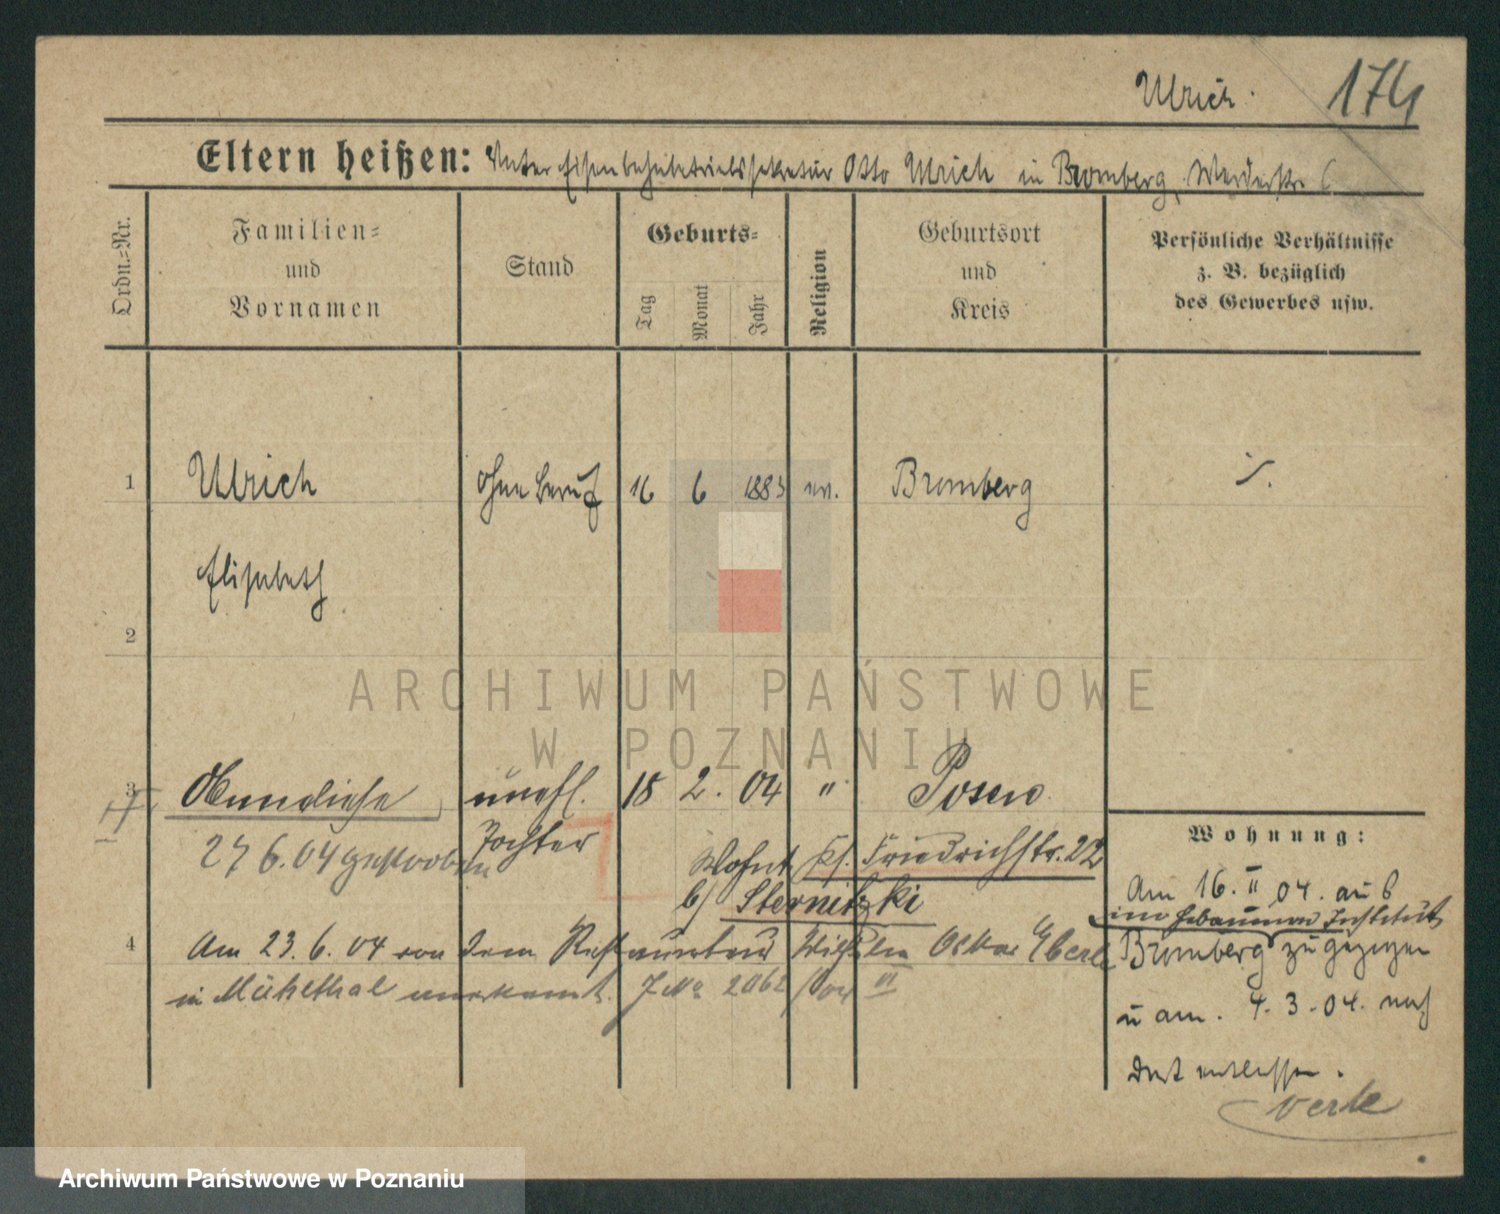 Ulrich. 174
Eltern heißen: Vater Eisenbahnbetriebssekretär Otto Ulrich in Bromberg, Werderstr 6
Ordn.-Nr.
Familien-
und
Vornamen
Stand
Geburts-
Tag
Monat
Jahr
Religion
Geburtsort
und
Kreis
Persönliche Verhältnisse
z. B. bezüglich
des Gewerbes usw.
1 Ulrich ohne Beruf 16 6 1883 ev. Bromberg ./.
Elisabeth
2
ARCHIWUM PAŃSTWOWE
W POZNANIU
3 unehl. 18 2. 04 " Posen
Tochter
27 6. 04 gestorben
wohnt Friedrichstr. 22
b/ Sternitzki
4 Am 23. 6. 04 von dem Restaurateur Wilhelm Oskar Eberle
in Mühlthal anerkannt. J No 2062 VI
Wohnung:
Am 16. II 04. aus
im Hebammen Institut
Bromberg zugezogen
u am. 4. 3. 04. nach
dort entlassen.
Archiwum Państwowe w Poznaniu